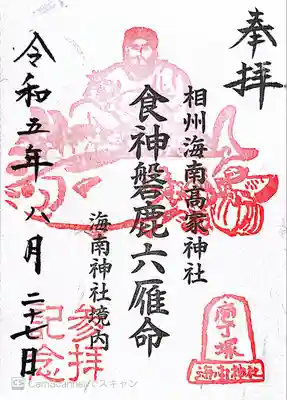 奉拝
相州海南高家神社
食神磐鹿六雁命
海南神社境内
令和五年八月二十七日
参拝
記念
庖丁塚
海南神社
CS CamScannerでスキャン